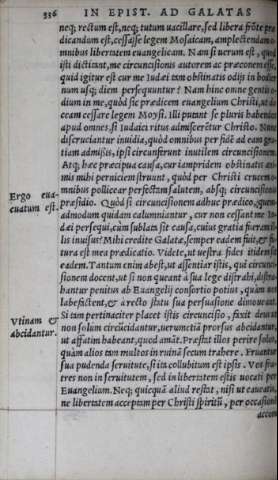 336 IN EPIST. AD GALATAS
neq; rectum est, neq; tutum uacillare, sed libera frōte præ
dicandum est, cessasse legem Mosaicam, amplectendam
omnibus libertatem euangelicam. Nam si uerum est, quod
isti dictitant, me circuncisionis autorem ac præconem esse,
quid igitur est cur me Iudæi tam obstinatis odijs in hodier
num usq; diem persequuntur? Nam hinc omne gentis o⸗
dium in me, quòd sic prædicem euangelium Christi, ut di
ceam cessare legem Mosi. Illi putant se pluris habendos
apud omnes, si Iudaici ritus admiscerētur Christo. Nunc
discruciantur inuidia, quòd omnibus per fidē ad eam gra⸗
tiam admissis, ipsi circunferunt inutilem circuncisionem.
Atq; hæc præcipua causa, cur iampridem obstinatis ani⸗
mis mihi perniciem struunt, quòd per Christi crucem o⸗
mnibus pollicear perfectam salutem, absq; circuncisionis
Ergo eua⸗
cuatum est.
præsidio. Quòd si circuncisionem adhuc prædico, quem⸗
admodum quidam calumniantur, cur non cessant me Iu⸗
dæi persequi, cùm sublata sit causa, cuius gratia fueram il⸗
lis inuisus? Mihi credite Galatæ, semper eadem fuit, & fu
tura est mea prædicatio. Videte, ut uestra fides itidem sit
eadem. Tantum enim abest, ut assentiar istis, qui circunci⸗
sionem docent, ut si non queant à sua lege distrahi,
bantur penitus ab Euangelij consortio potius, quàm uos
labefactent, & à recto statu sua persuasione dimoueant.
Vtinam &
abcidantur.
Si tam pertinaciter placet istis circuncisio, faxit deus ut
non solum circūcidantur, uerumetiā prorsus abcidantur,
ut affatim habeant, quod amāt. Præstat illos perire solos,
quàm alios tam multos in ruinā secum trahere. Fruantur
sua pudenda seruitute, si ita collubitum est ipsis. Vos fra⸗
tres non in seruitutem, sed in libertatem estis uocati per
Euangelium. Neq; quicquā aliud restat, nisi ut caueatis,
ne libertatem acceptam per Christi spiritū, per occasionē